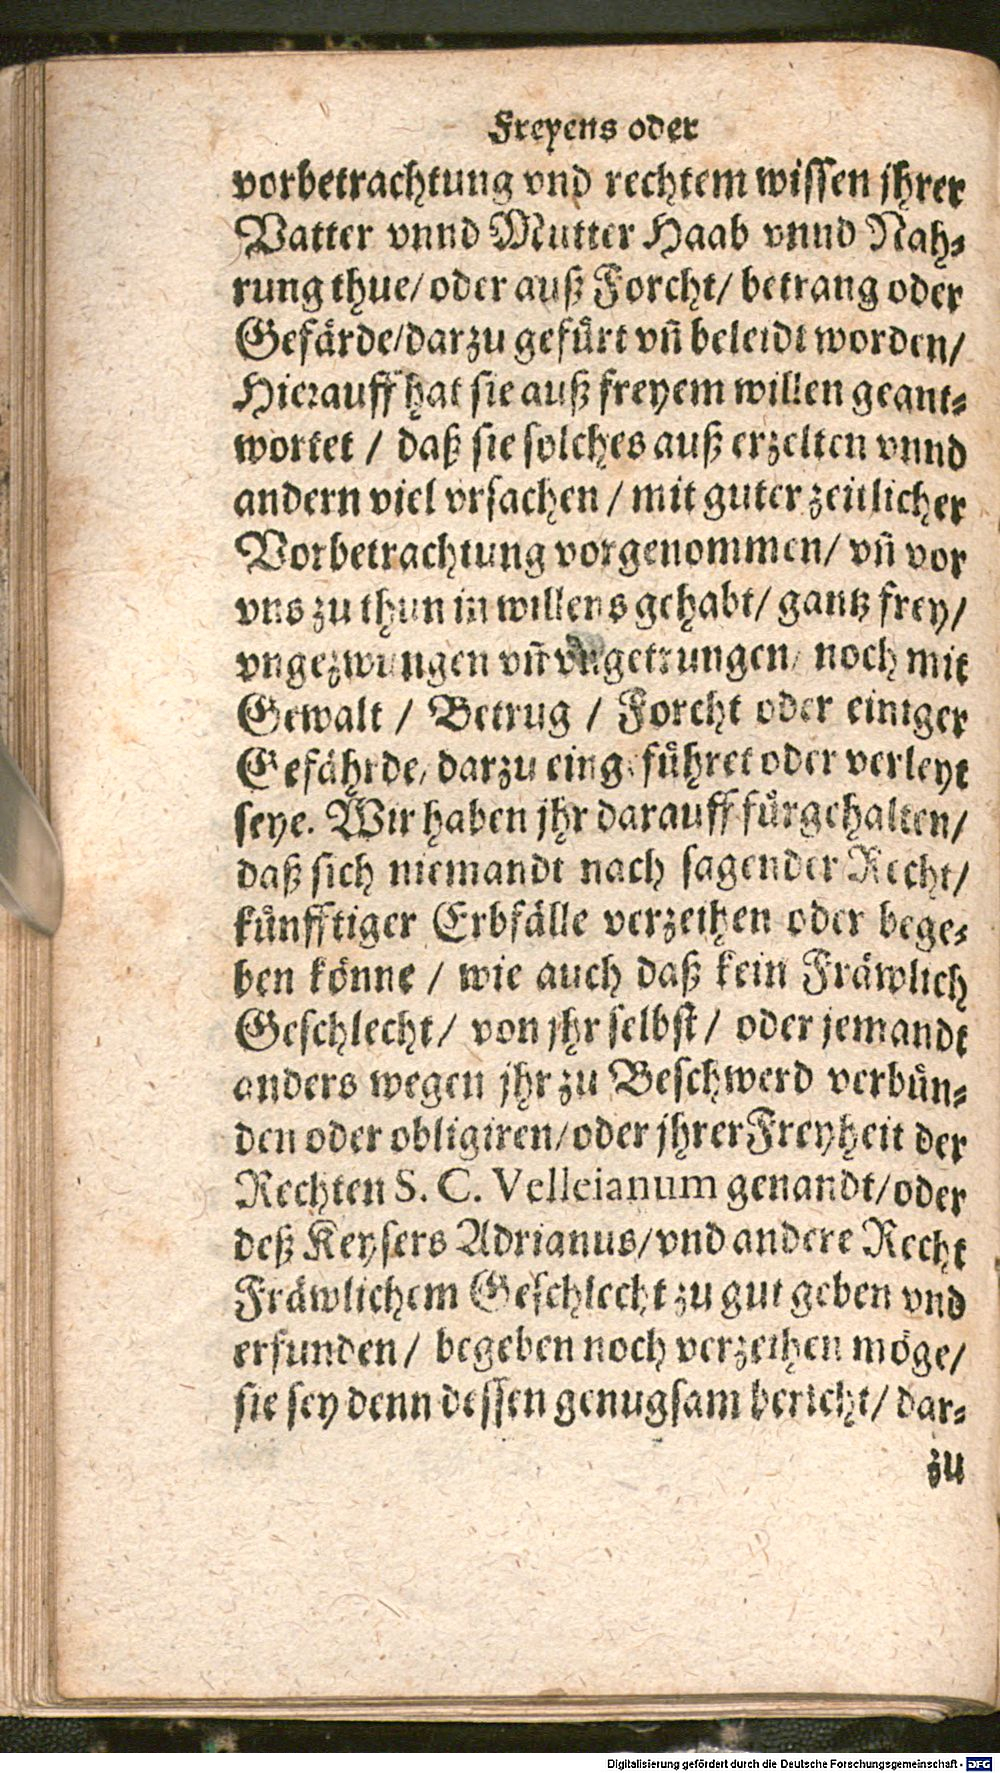 Freyens oder
vorbetrachtung vnd rechtem wissen jhrer
Vatter vnnd Mutter Haab vnnd Nah⸗
rung thue/ oder auß Forcht/ betrang oder
Gefärde/darzu gefürt vñ beleidt worden/
Hierauff hat sie auß freyem willen geant⸗
wortet / daß sie solches auß erzelten vnnd
andern viel vrsachen / mit guter zeitlicher
Vorbetrachtung vorgenommen/ vñ vor
vns zu thun in willens gehabt/ gantz frey/
vngezwungen vñ vngetrungen/ noch mit
Gewalt / Betrug / Forcht oder einiger
Gefährde, darzu eingeführet oder verleyt
seye. Wir haben jhr darauff fürgehalten/
daß sich niemandt nach sagender Recht/
künfftiger Erbfälle verzeihen oder bege⸗
ben könne / wie auch daß kein Fräwlich
Geschlecht/ von jhr selbst/ oder jemandt
anders wegen jhr zu Beschwerd verbün⸗
den oder obligiren/oder jhrer Freyheit der
Rechten S. C. Velleianum genandt/oder
deß Keysers Adrianus/vnd andere Recht
Fräwlichem Geschlecht zu gut geben vnd
erfunden/ begeben noch verzeihen möge/
sie sey denn dessen genugsam bericht/ dar⸗
zu
Digitalisierung gefördert durch die Deutsche Forschungsgemeinschaft - DFG